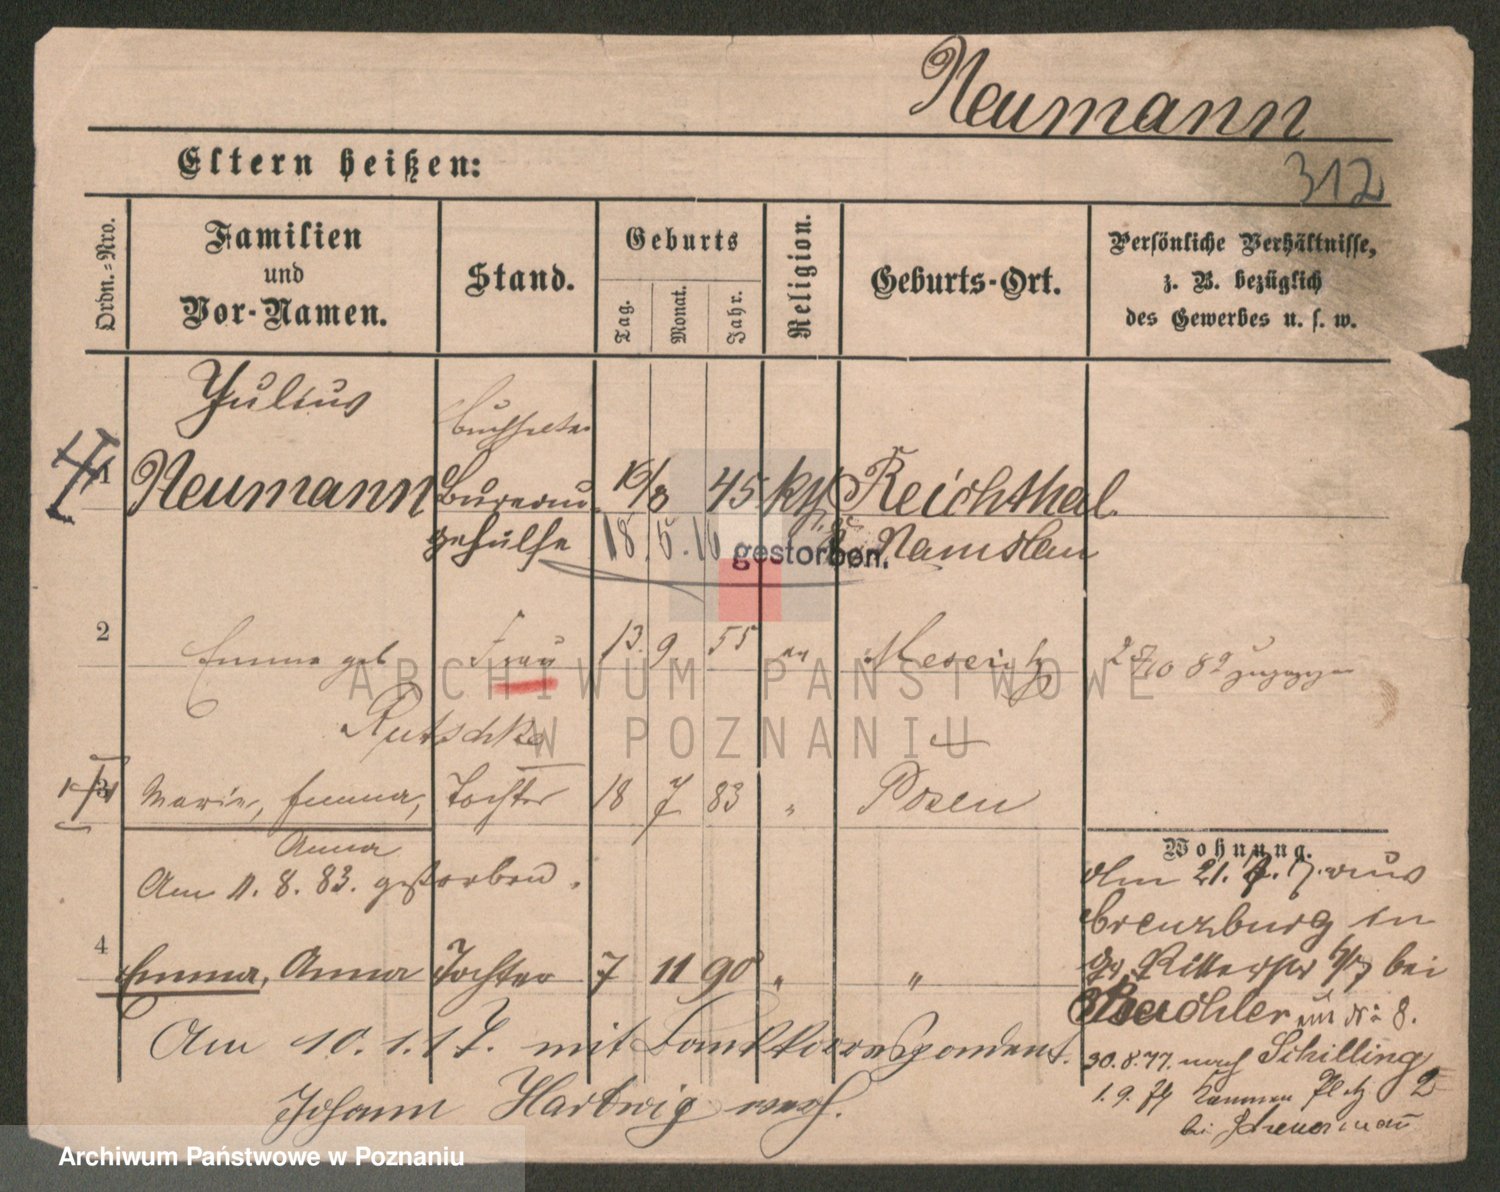 Neumann
312
Eltern heißen:
Ordn.=Nro.
Familien
und
Vor-Namen.
Stand.
Geburts
Tag.
Monat.
Jahr.
Religion.
Geburts-Ort.
Persönliche Verhältnisse,
z. B. bezüglich
des Gewerbes u. s. w.
Julius
Buchhalter
1 Neumann Bureau 19/8 45 kth Reichthal
gehülfe 18. 5. 16 gestorben. Namslau
2 Emma geb Frau 13. 9 55 ev Meseritz
Rutschke
3 Marie, Emma, Tochter 18 7 83 " Posen
Anna
Am 11. 8. 83. gestorben.
4 Emma, Anna Tochter 7 11 90 " "
Am 10. 1. 17. mit Bankkorrespondent.
Johann Hartwig verh.
Wohnung.
Am 21. 7. aus
Creuzburg in
gr. Ritterstr bei
30.8.77. nach Schilling
1. 9. 79 2
bei
ARCHIWUM PAŃSTWOWE
W POZNANIU
Archiwum Państwowe w Poznaniu